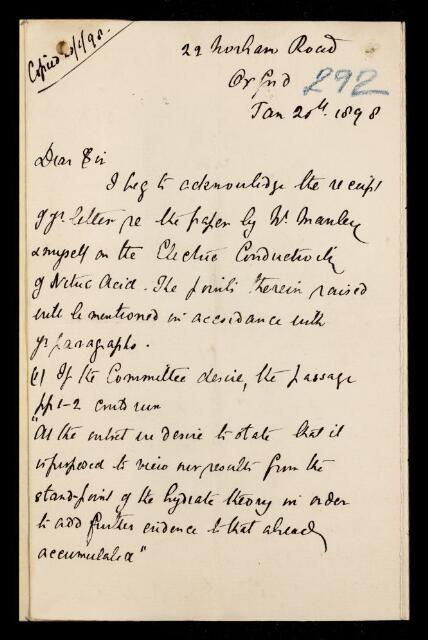 Copied 20/1/98.
22 Norham Road
Oxford
292
Jan 20th. 1898
Dear Sir
I beg to acknowledge the receipt
of yr. letter re the paper by Mr. Manley
& myself on the Electric Conductivity
of Nitric Acid. The points therein raised
will be mentioned in accordance with
yr. paragraphs.
(1) If the Committee desire, the passage
pp 1-2 could run
"At the outset we desire to state that it
is proposed to view our results from the
stand-point of the hydrate theory in order
to add further evidence to that already
accumulated"